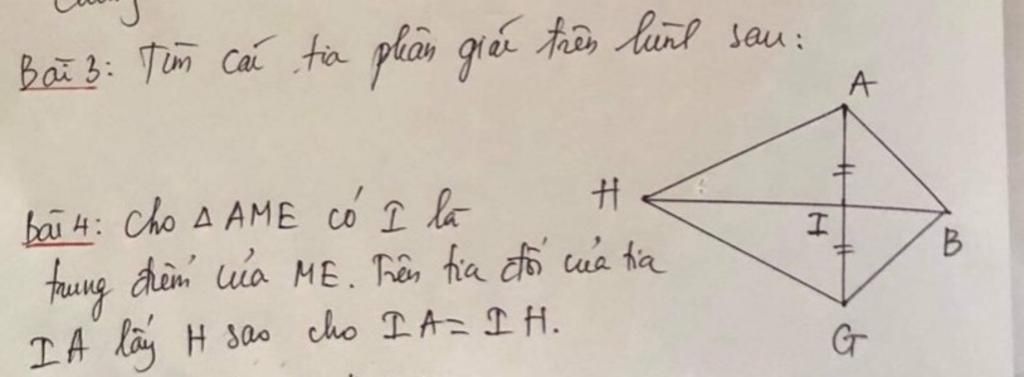 Bài 3: Tìm các tia phân giác trên hình sau:
A
H
I
B
G
Bài 4: Cho △ AME có I là
trung điểm của ME. Trên tia đối của tia
IA lấy H sao cho IA = IH.